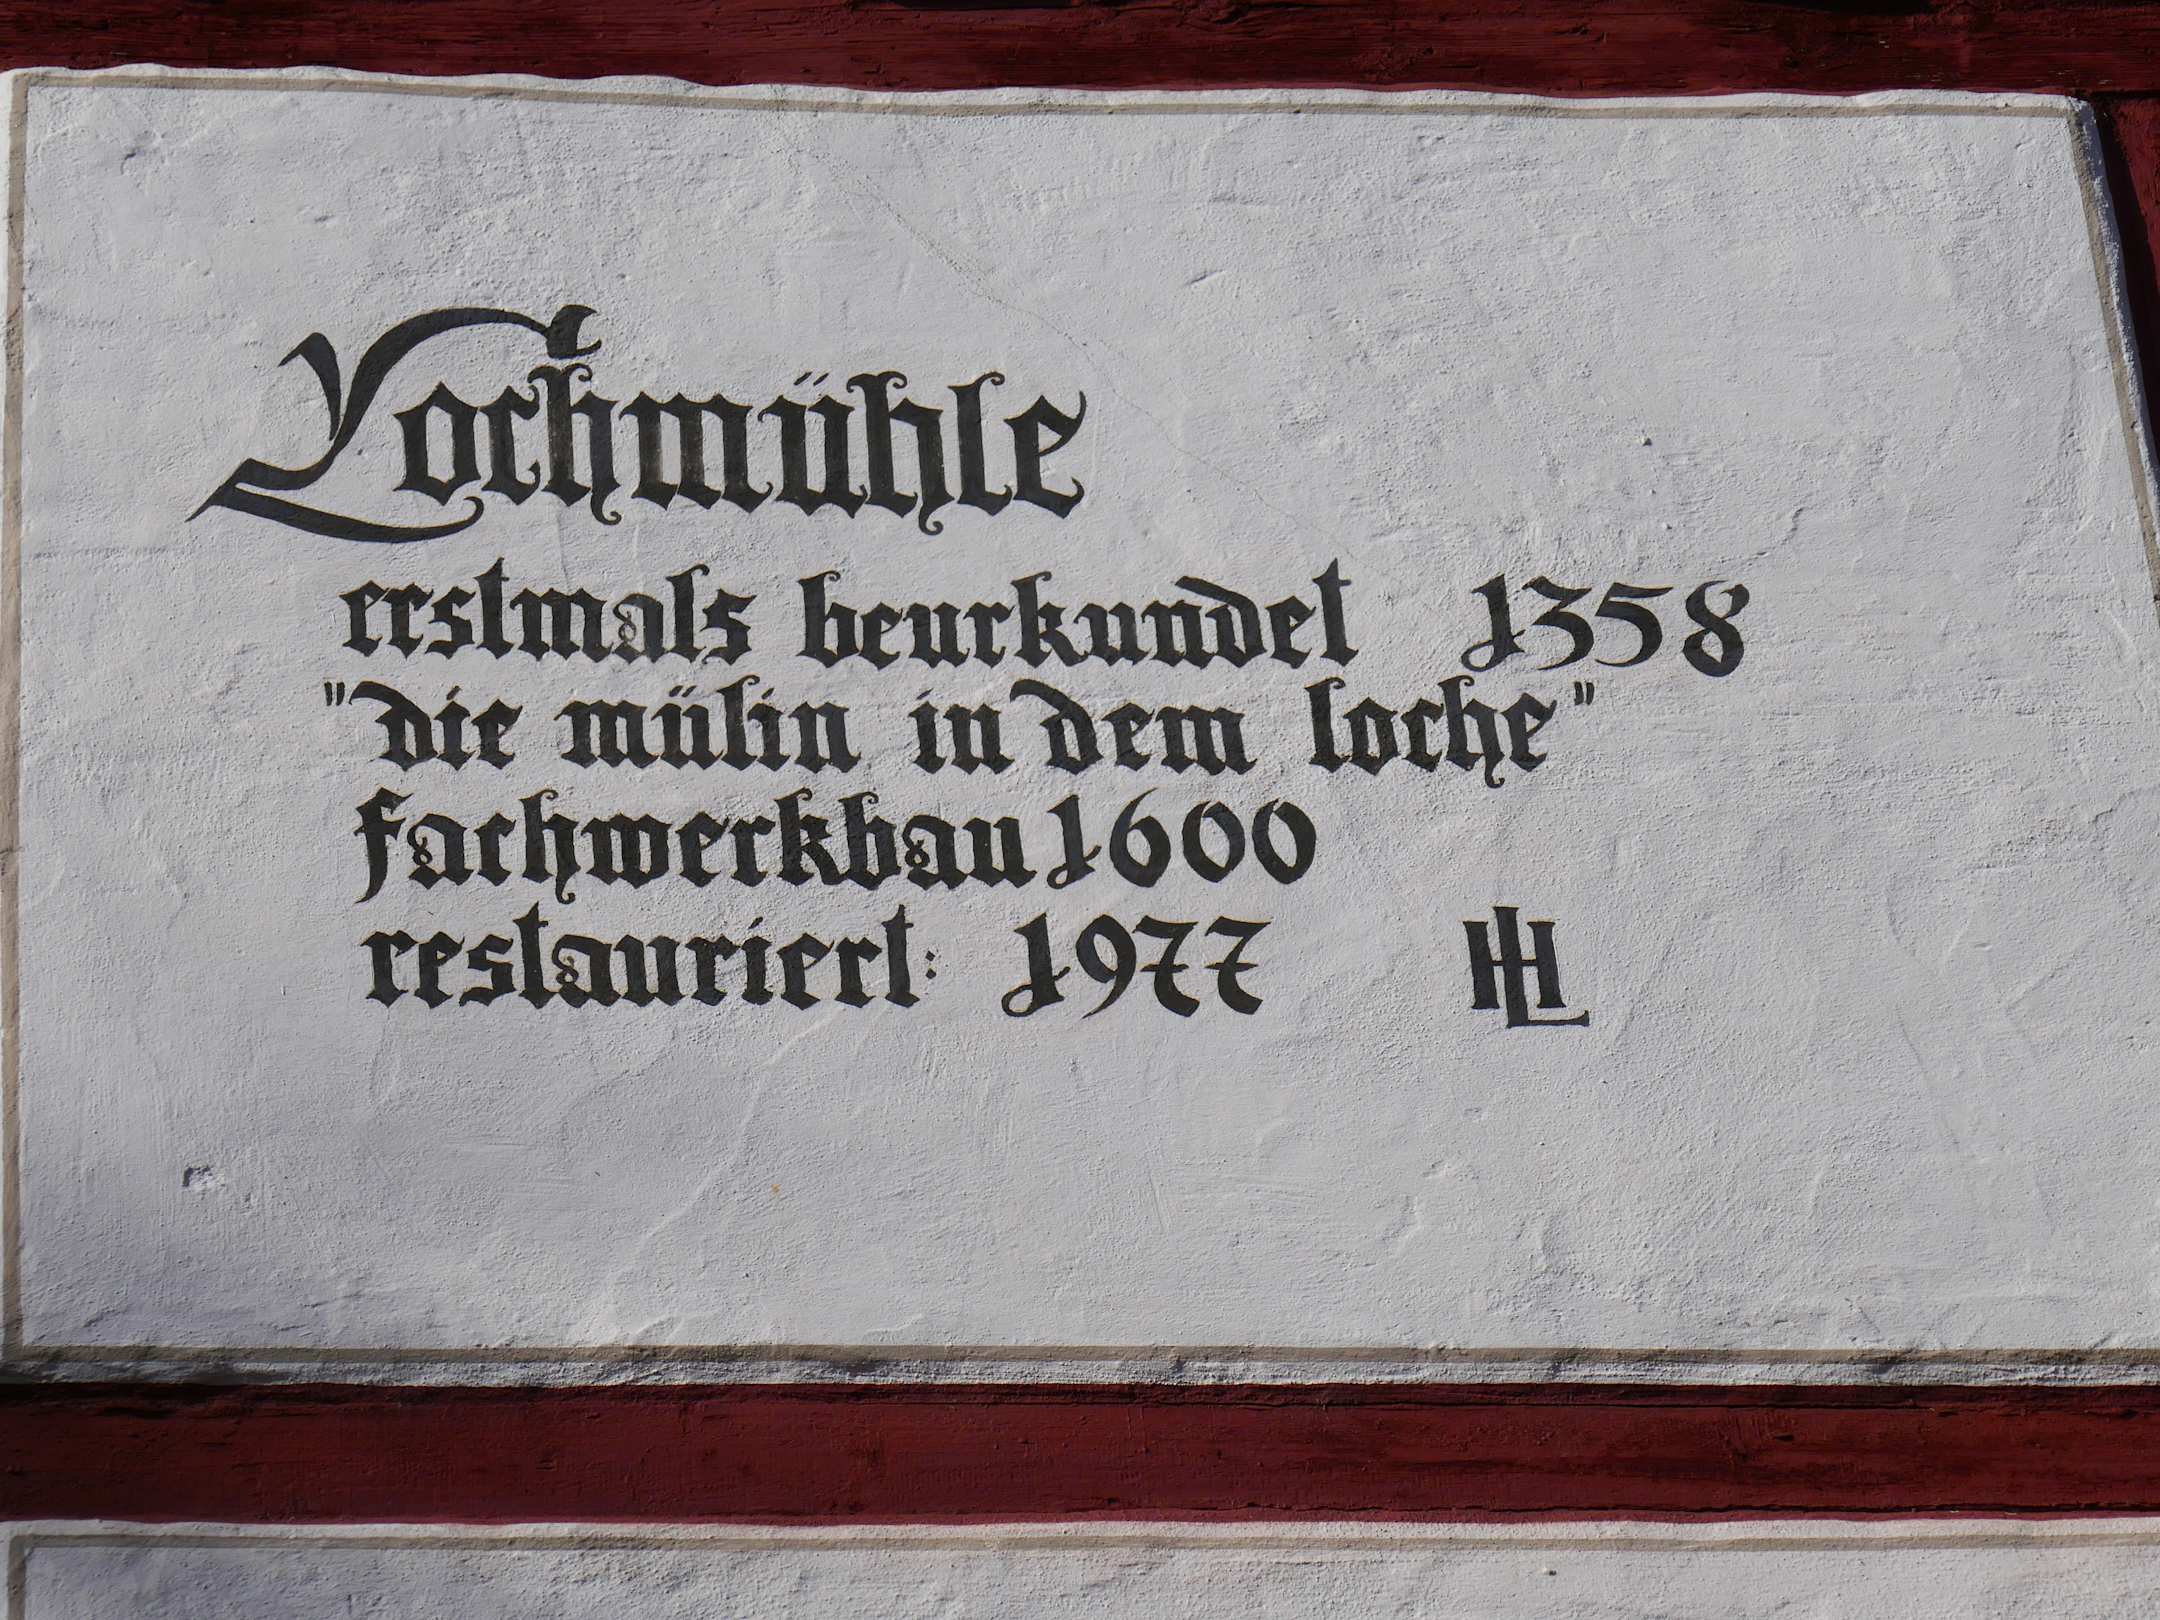 Lochmühle
erstmals beurkundet 1358
"die mülin in dem loche"
fachwerkbau 1600
restauriert: 1977 HL